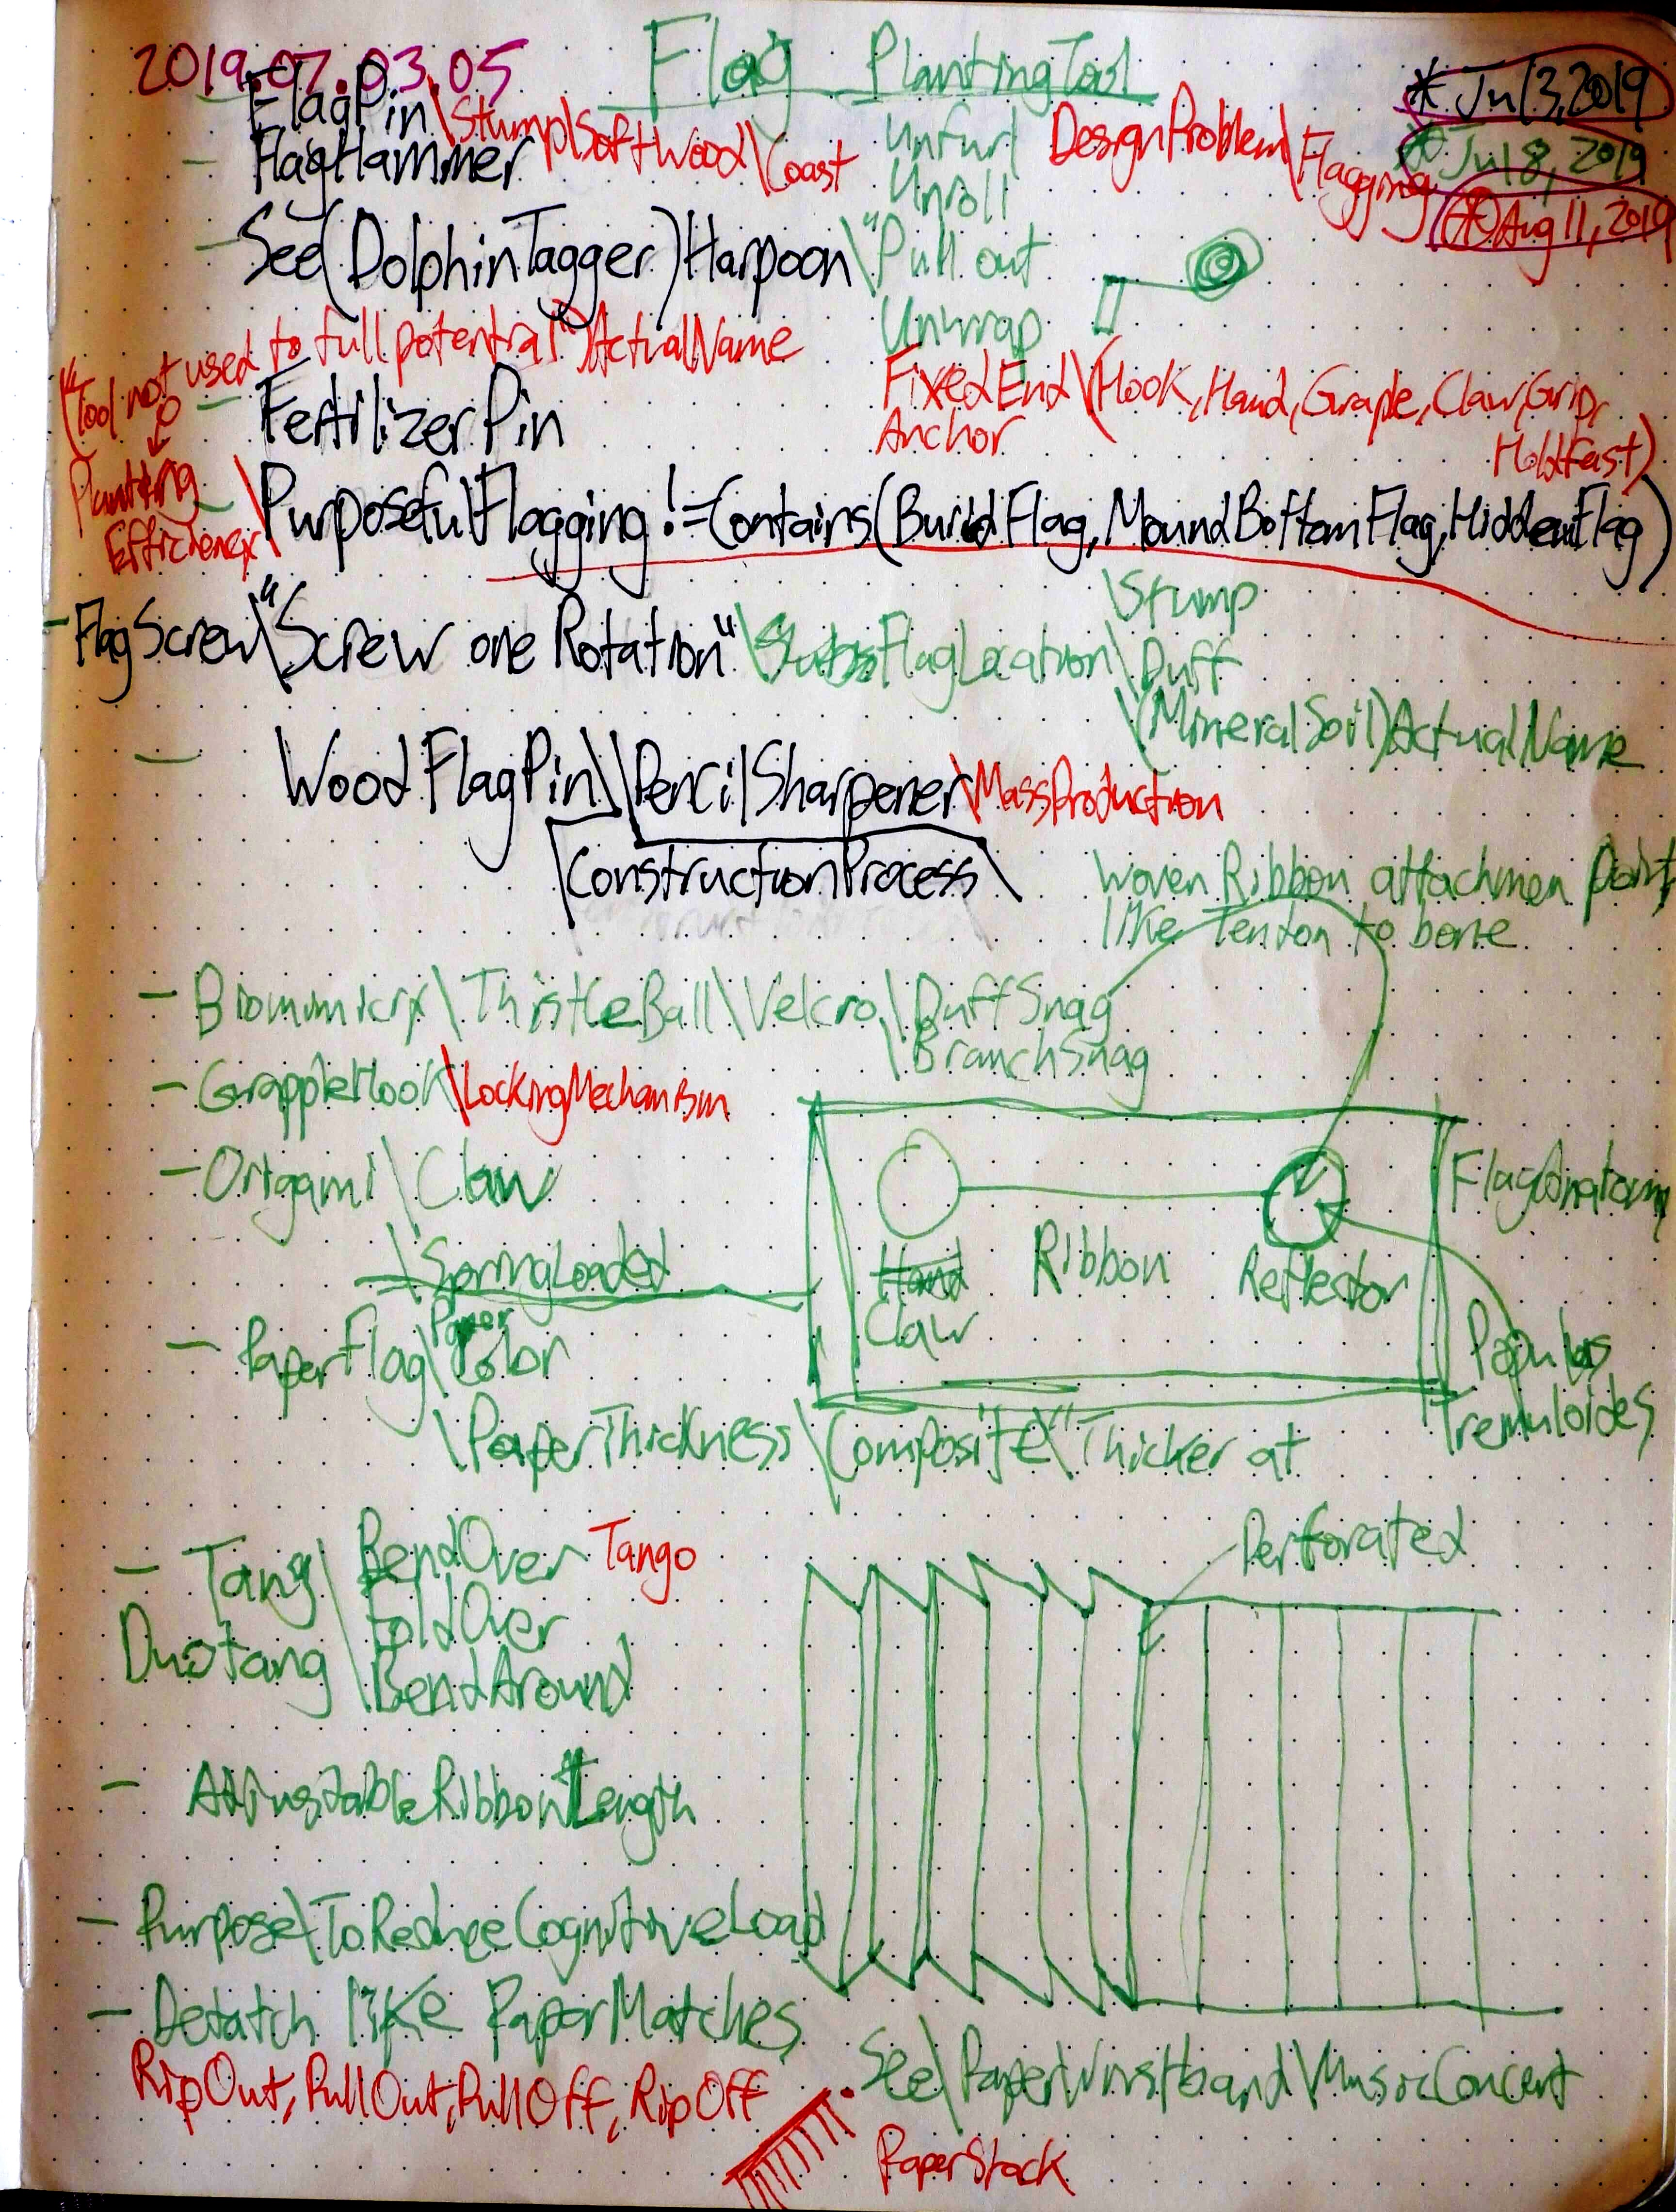 2019.07.03.05
Flag Planting Tool
* Jul 3, 2019
* Jul 8, 2019
* Aug 11, 2019
- FlagPin\Stump\SoftWood\Coast
- FlagHammer
Unfurl
Unroll
DesignProblem\Flagging
- See(DolphinTagger)Harpoon\"Pull out
Unwrap
("Tool not used to full potential")ActualName
- FertilizerPin
FixedEnd\(Hook, Hand, Graple, Claw, Grip,
Holdfast)
Anchor
Planting
Efficiency\
- PurposefulFlagging != Contains(BuriedFlag, MoundBottomFlag, HiddenFlag)
- FlagScrew\"Screw one Rotation"
FlagLocation\Duff
\Stump
\(MineralSoil)ActualName
- WoodFlagPin\\PencilSharpener\MassProduction
\ConstructionProcess\
Woven Ribbon attachmen point
like Tendon to bone
- Biomimicry\ThistleBall\Velcro\DuffSnag
\BranchSnag
- GrappleHook\LockingMechanism
- Origami\Claw
\SpringLoaded
Hand
Claw
Ribbon
Reflector
FlagAnatomy
Populus
Tremuloides
- PaperFlag\Color
Paper
\PaperThickness\Composite\"Thicker at
- Tang\BendOver Tango
Duotang
FoldOver
\BendAround
Perforated
- AdjustableRibbonLength
- Purpose\ToReduceCognitiveLoad
- Detatch like PaperMatches
RipOut, PullOut, PullOff, RipOff
See\PaperWristband\MusicConcert
PaperStack